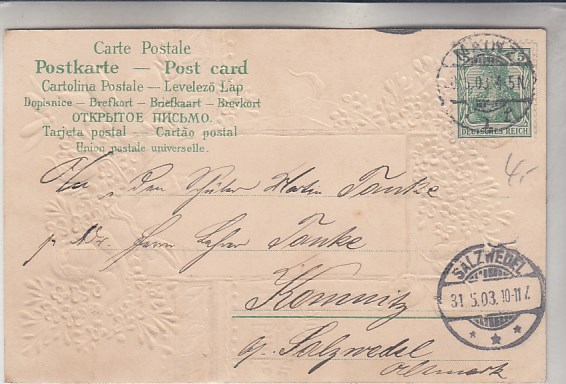 Carte Postale
Postkarte — Post card
Cartolina Postale — Levelező Lap
Dopisnice — Brefkort — Briefkaart — Brevkort
ОТКРЫТОЕ ПИСЬМО.
Tarjeta postal — Cartão postal
Union postale universelle.
MAINZ
5.03. 4-5N.
DEUTSCHES REICH
4,-
An den Schüler Martin Tanke
p. Adr. Herrn Lehrer Tanke
SALZWEDEL
31.5.03.10-11V.
* * *
Komnitz
b/. Salzwedel
Altmark